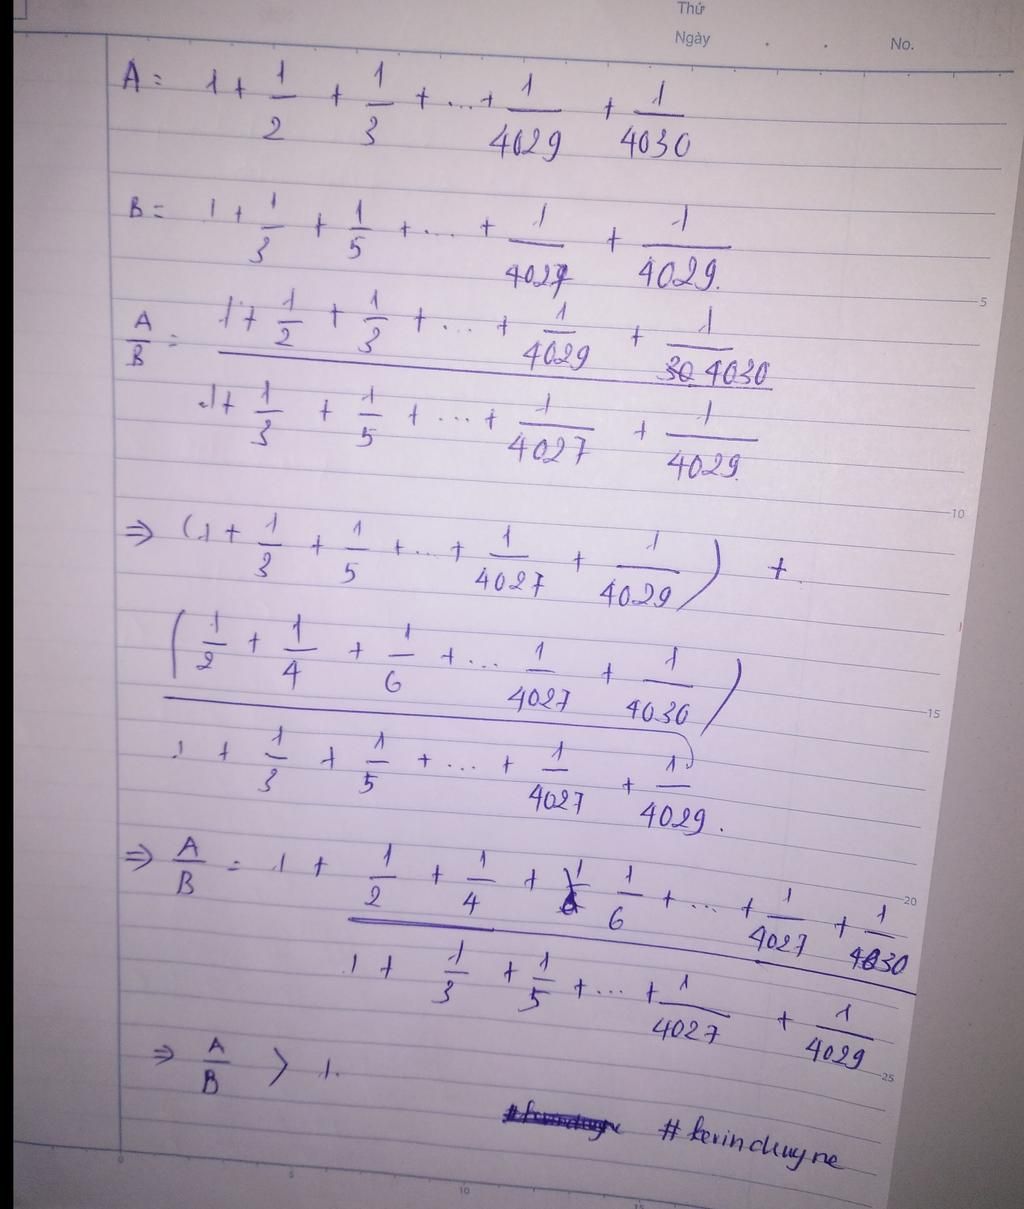 Thứ
Ngày . . No.
A = 1 + 1/2 + 1/3 + ... + 1/4029 + 1/4030
B = 1 + 1/3 + 1/5 + ... + 1/4027 + 1/4029.
5
A/B = (1 + 1/2 + 1/3 + ... + 1/4029 + 1/4030) / (1 + 1/3 + 1/5 + ... + 1/4027 + 1/4029.)
10
⇒ (1 + 1/3 + 1/5 + ... + 1/4027 + 1/4029) +
(1/2 + 1/4 + 1/6 + ... 1/4027 + 1/4030)
15
1 + 1/3 + 1/5 + ... + 1/4027 + 1/4029.
⇒ A/B = 1 + (1/2 + 1/4 + 1/6 + ... + 1/4027 + 1/4030) / (1 + 1/3 + 1/5 + ... + 1/4027 + 1/4029)
20
25
⇒ A/B > 1.
#kevinduyne
0 5 10 15